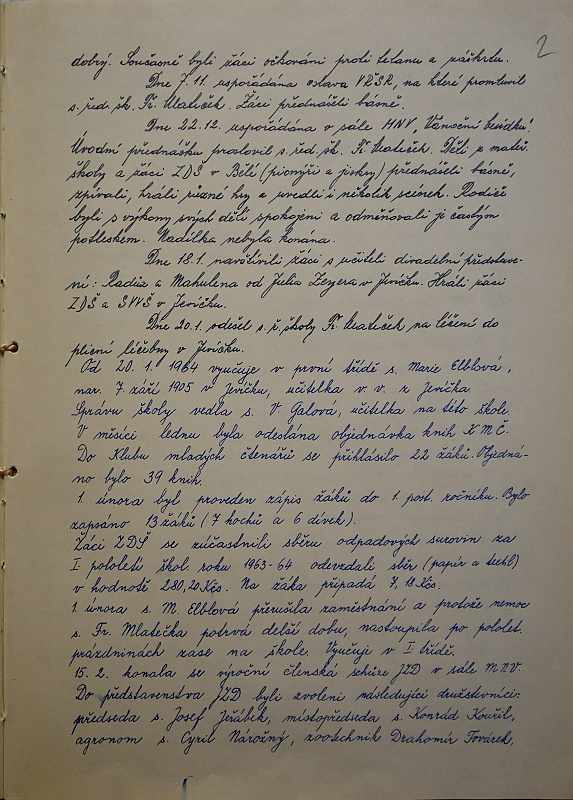 2
dobrý. Současně byli žáci očkováni proti tetanu a záškrtu.
Dne 7.11. uspořádána oslava VŘSR, na které promluvil
s. řed. šk. Fr. Mlateček. Žáci přednášeli básně.
Dne 22.12. uspořádána v sále MNV „Vánoční besídka“.
Úvodní přednášku proslovil s. řed. šk. Fr. Mlateček. Děti z mateř.
školy a žáci ZDŠ v Bělé (pionýři a jiskry) přednášeli básně,
zpívali, hráli různé hry a uvedli i několik scének. Rodiče
byli s výkony svých dětí spokojeni a odměňovali je častým
potleskem. Nadílka nebyla konána.
Dne 18.1. navštívili žáci s učiteli divadelní představe-
ní: Radúz a Mahulena od Julia Zeyera v Jevíčku. Hráli žáci
ZDŠ a SVVŠ v Jevíčku.
Dne 20.1. odešel s. ř. školy Fr. Mlateček na léčení do
plicní léčebny v Jevíčku.
Od 20. 1. 1964 vyučuje v první třídě s. Marie Elblová,
nar. 7. září 1905 v Jevíčku, učitelka v. v. z Jevíčka.
Správu školy vedla s. V. Galová, učitelka na této škole.
V měsíci lednu byla odeslána objednávka knih KMČ.
Do Klubu mladých čtenářů se přihlásilo 22 žáků. Objedná-
no bylo 39 knih.
1. února byl proveden zápis žáků do 1. post. ročníku. Bylo
zapsáno 13 žáků (7 hochů a 6 dívek).
Žáci ZDŠ se zúčastnili sběru odpadových surovin za
I. pololetí škol. roku 1963-64 odevzdali sběr (papír a textil)
v hodnotě 280,20 Kčs. Na žáka připadá 7,18 Kčs.
1. února s. M. Elblová přerušila zaměstnání a protože nemoc
s. Fr. Mlatečka potrvá delší dobu, nastoupila po pololet.
prázdninách zase na škole. Vyučuje v I. třídě.
15. 2. konala se výroční členská schůze JZD v sále MNV.
Do představenstva JZD byli zvoleni následující družstevníci:
předseda s. Josef Jeřábek, místopředseda s. Konrád Kouřil,
agronom s. Cyril Nárožný, zootechnik Drahomír Továrek,